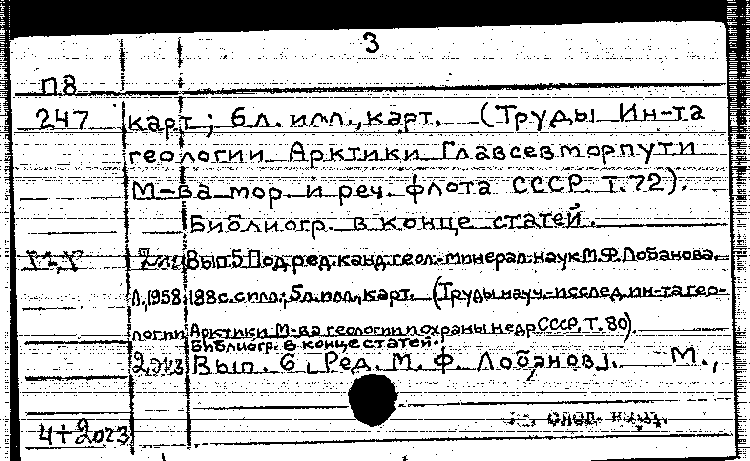 3
П8
247 карт; 6л. илл., карт. (Труды Ин-та
геологии Арктики Главсевморпути
М-ва мор. и реч. флота СССР. Т.72).
Библиогр. в конце статей.
Вып 5 Под ред. канд. геол.-минерал. наук М.Ф. Лобанова.
Л., 1958. 188с. с илл.; 5л. илл., карт. (Труды науч.-исслед. ин-та гео-
логии Арктики М-ва геологии и охраны недр СССР, Т. 80).
Библиогр. в конце статей.
2 экз Вып. 6, Ред. М. Ф. Лобанов]. М.,
4+2